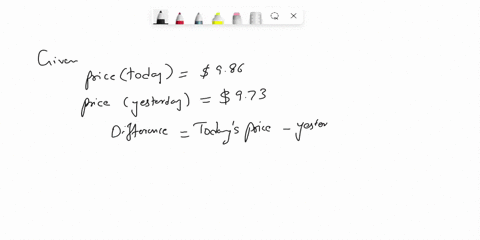 Given
price (today) = $9.86
price (yesterday) = $9.73
Difference = Today's price - yester